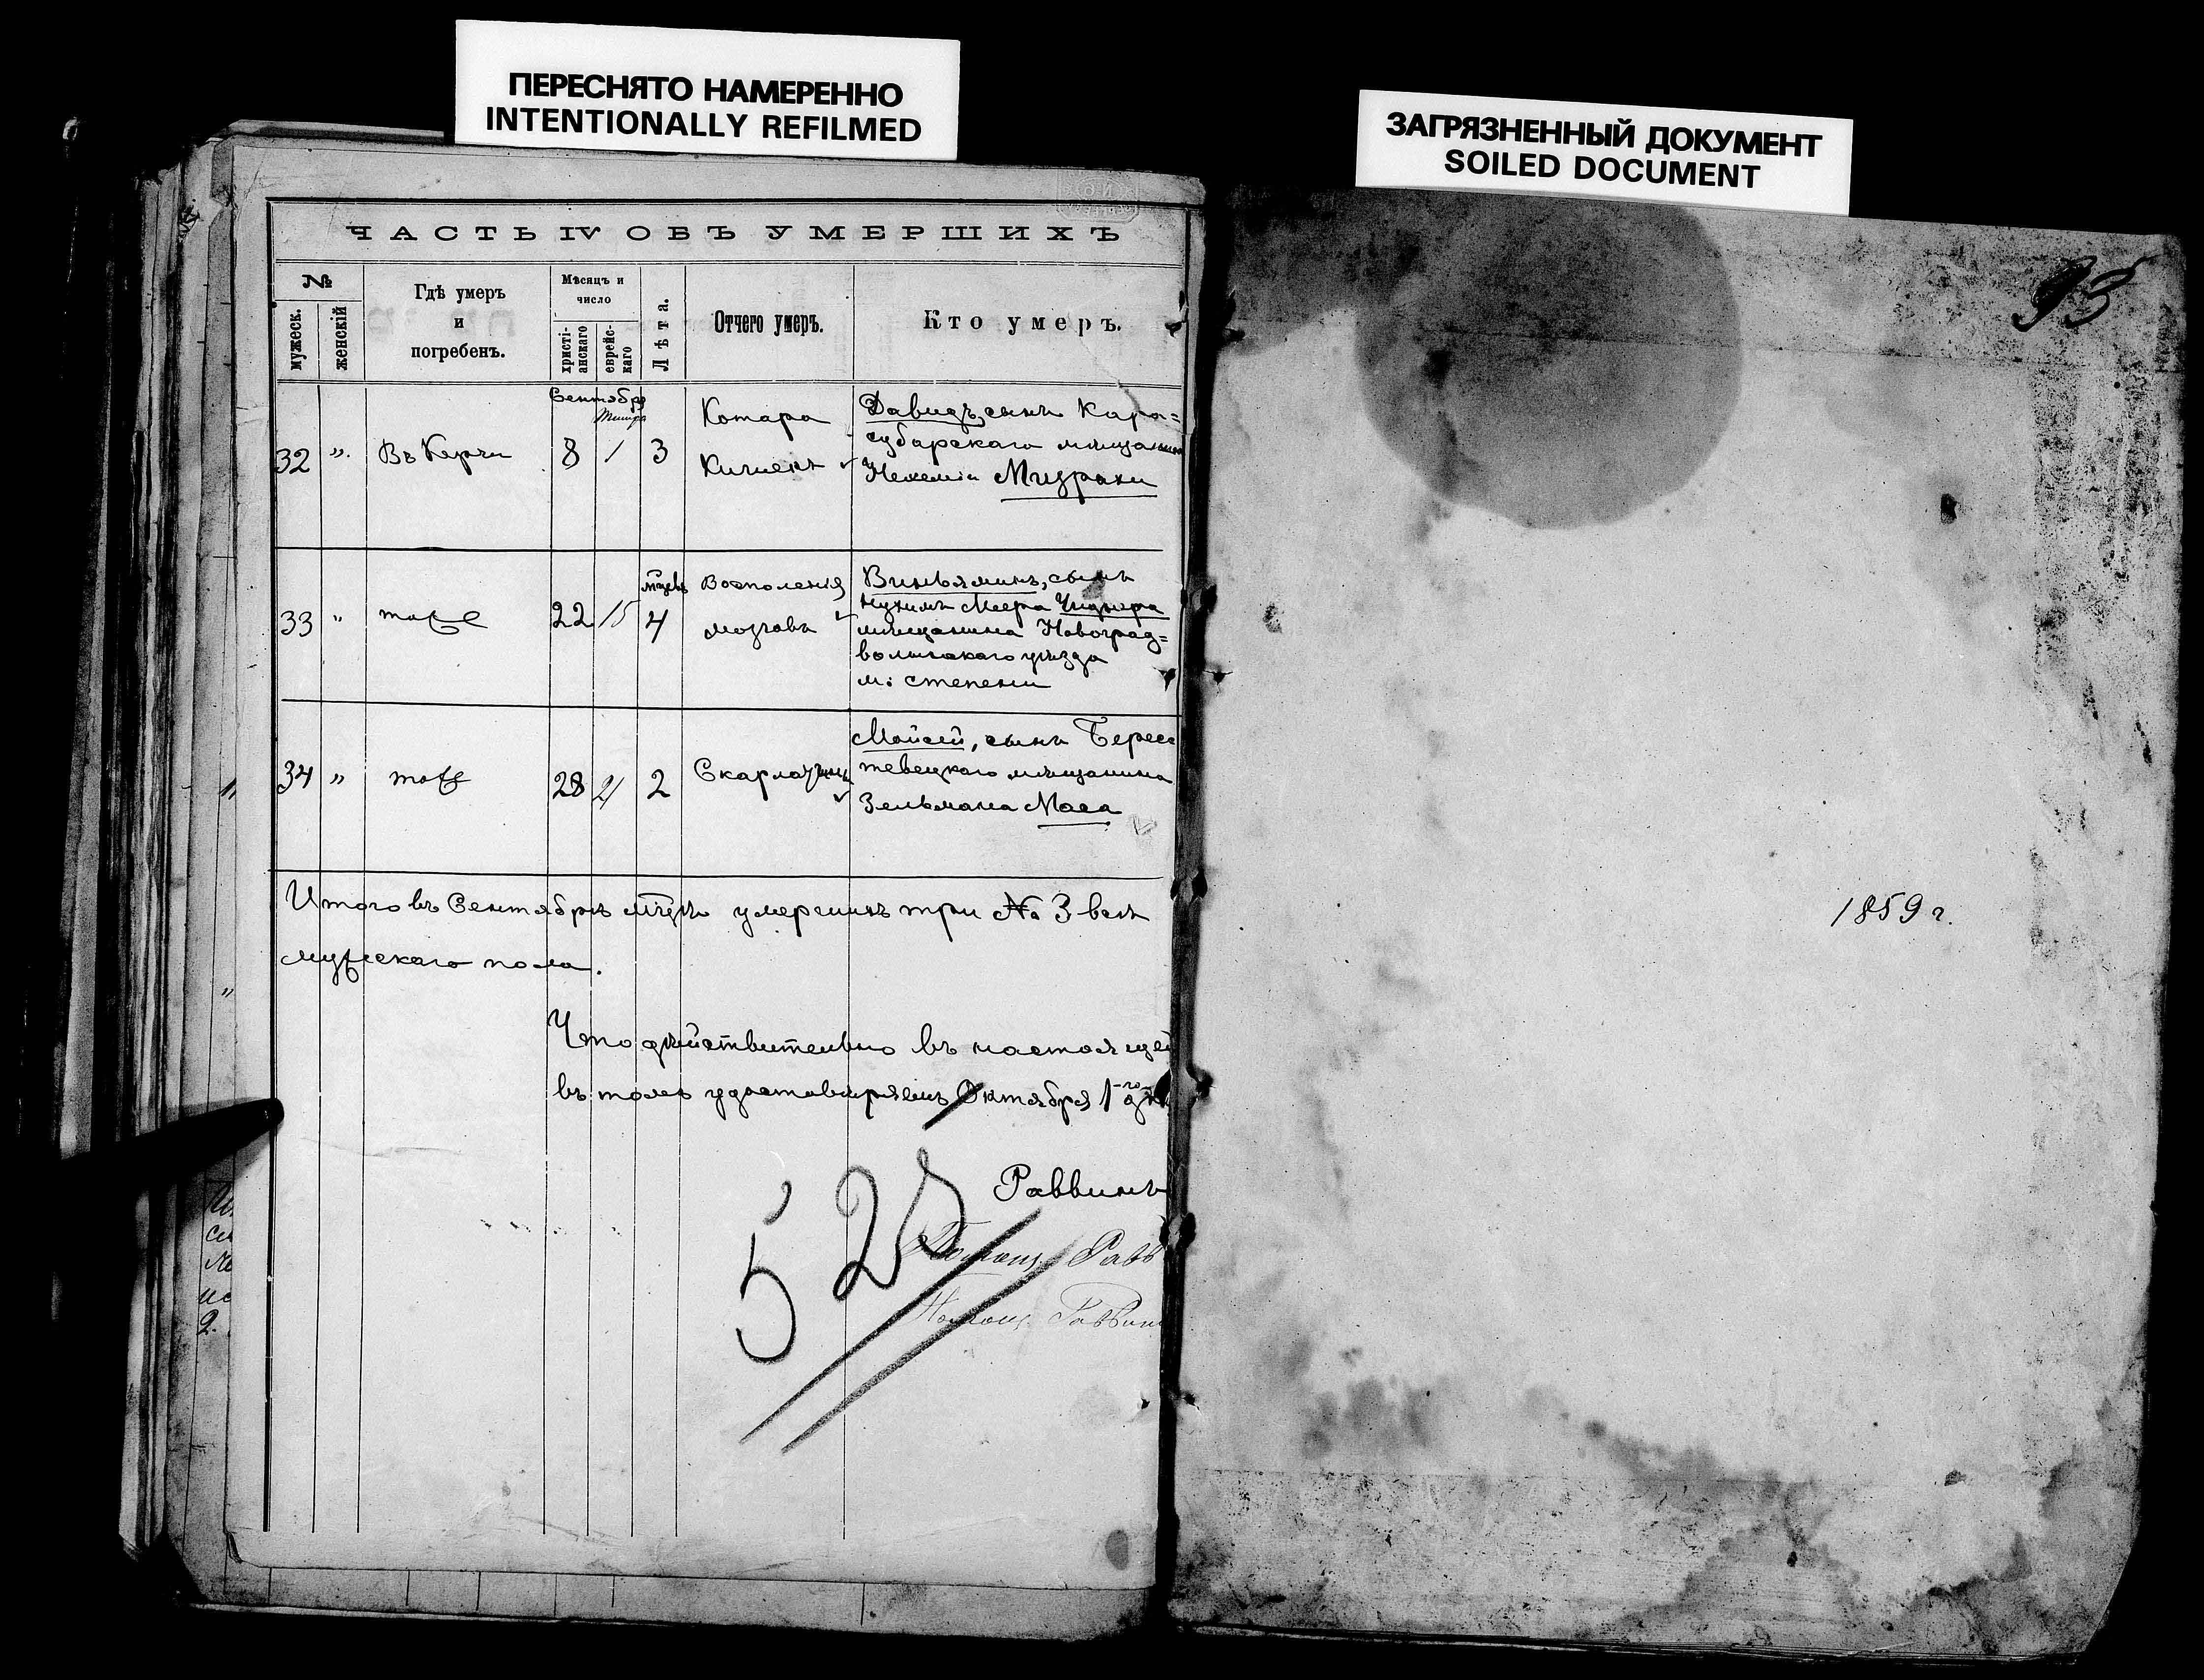 ПЕРЕСНЯТО НАМЕРЕННО
INTENTIONALLY REFILMED
ЗАГРЯЗНЕННЫЙ ДОКУМЕНТ
SOILED DOCUMENT
ЧАСТЬ IV ОБЪ УМЕРШИХЪ
№
мужеск.
женскій
Гдѣ умеръ
и
погребенъ.
Мѣсяцъ и
число
христі-
анскаго
еврейс-
каго
Лѣта.
Отчего умеръ.
Кто умеръ.
Сентября
32 " Въ Керчи 8 1 3
Катара
Кишекъ
Давидъ, сынъ Кара=
субарскаго мѣщанина
Нехеміи Мизрахи
33 " тоже 22 15 4
Восполенія
мозговъ
Виньяминъ, сынъ
Меера
мѣщанина Новоград=
волынскаго уѣзда
м: степени
34 " тоже 28 21 2
Скарлатина
Мойсей, сынъ Берес
течецкаго мѣщанина
Зельмана Маса
Итого въ Сентябрѣ мѣсяцѣ умершихъ три № 3 всѣ
мужескаго пола.
Что дѣйствительно въ настоящей
въ томъ удостовѣряемъ Октября 1-го дня
Раввинъ
525
Помощ. Равв
Помощ. Раввин
93
1859 г.